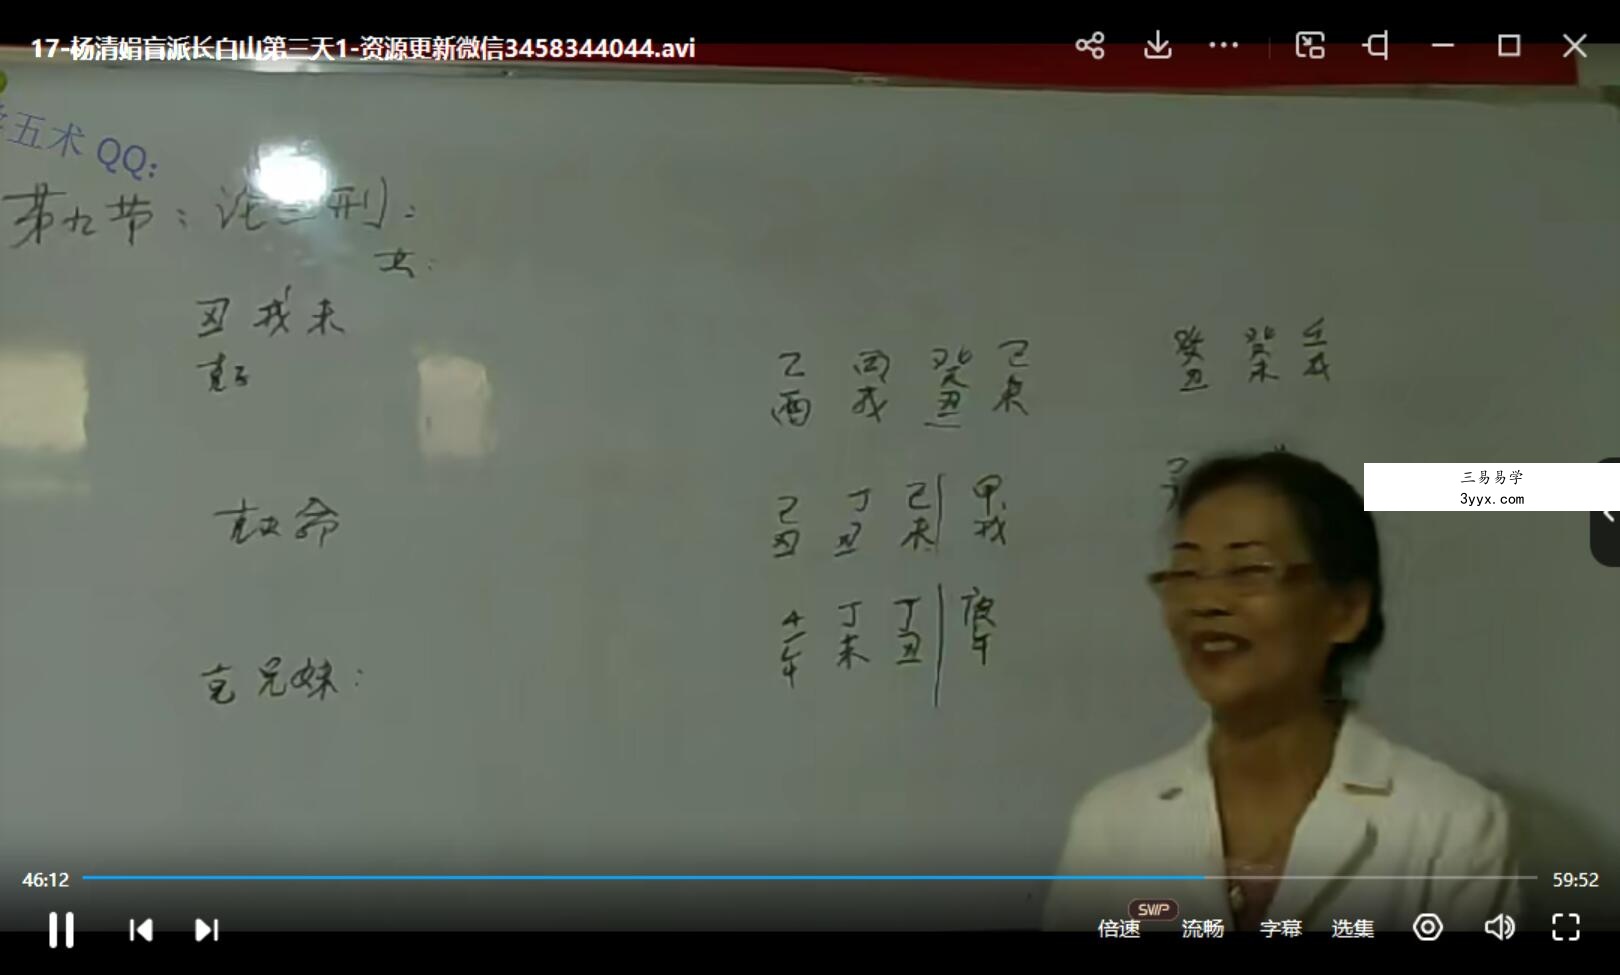 17-杨清娟盲派长白山第三天1-资源更新微信3458344044.avi
五术 QQ:
第九节：论三刑：
女：
丑戌未
克子
克夫 命
克兄妹：
己 丙 癸 己
酉 戌 丑 未
癸 癸 壬
丑 未 戌
己 丁 己 甲
丑 丑 未 戌
丁 丁 庚
午 未 丑 午
三易易学
3yyx.com
46:12
59:52
SVIP
倍速 流畅 字幕 选集